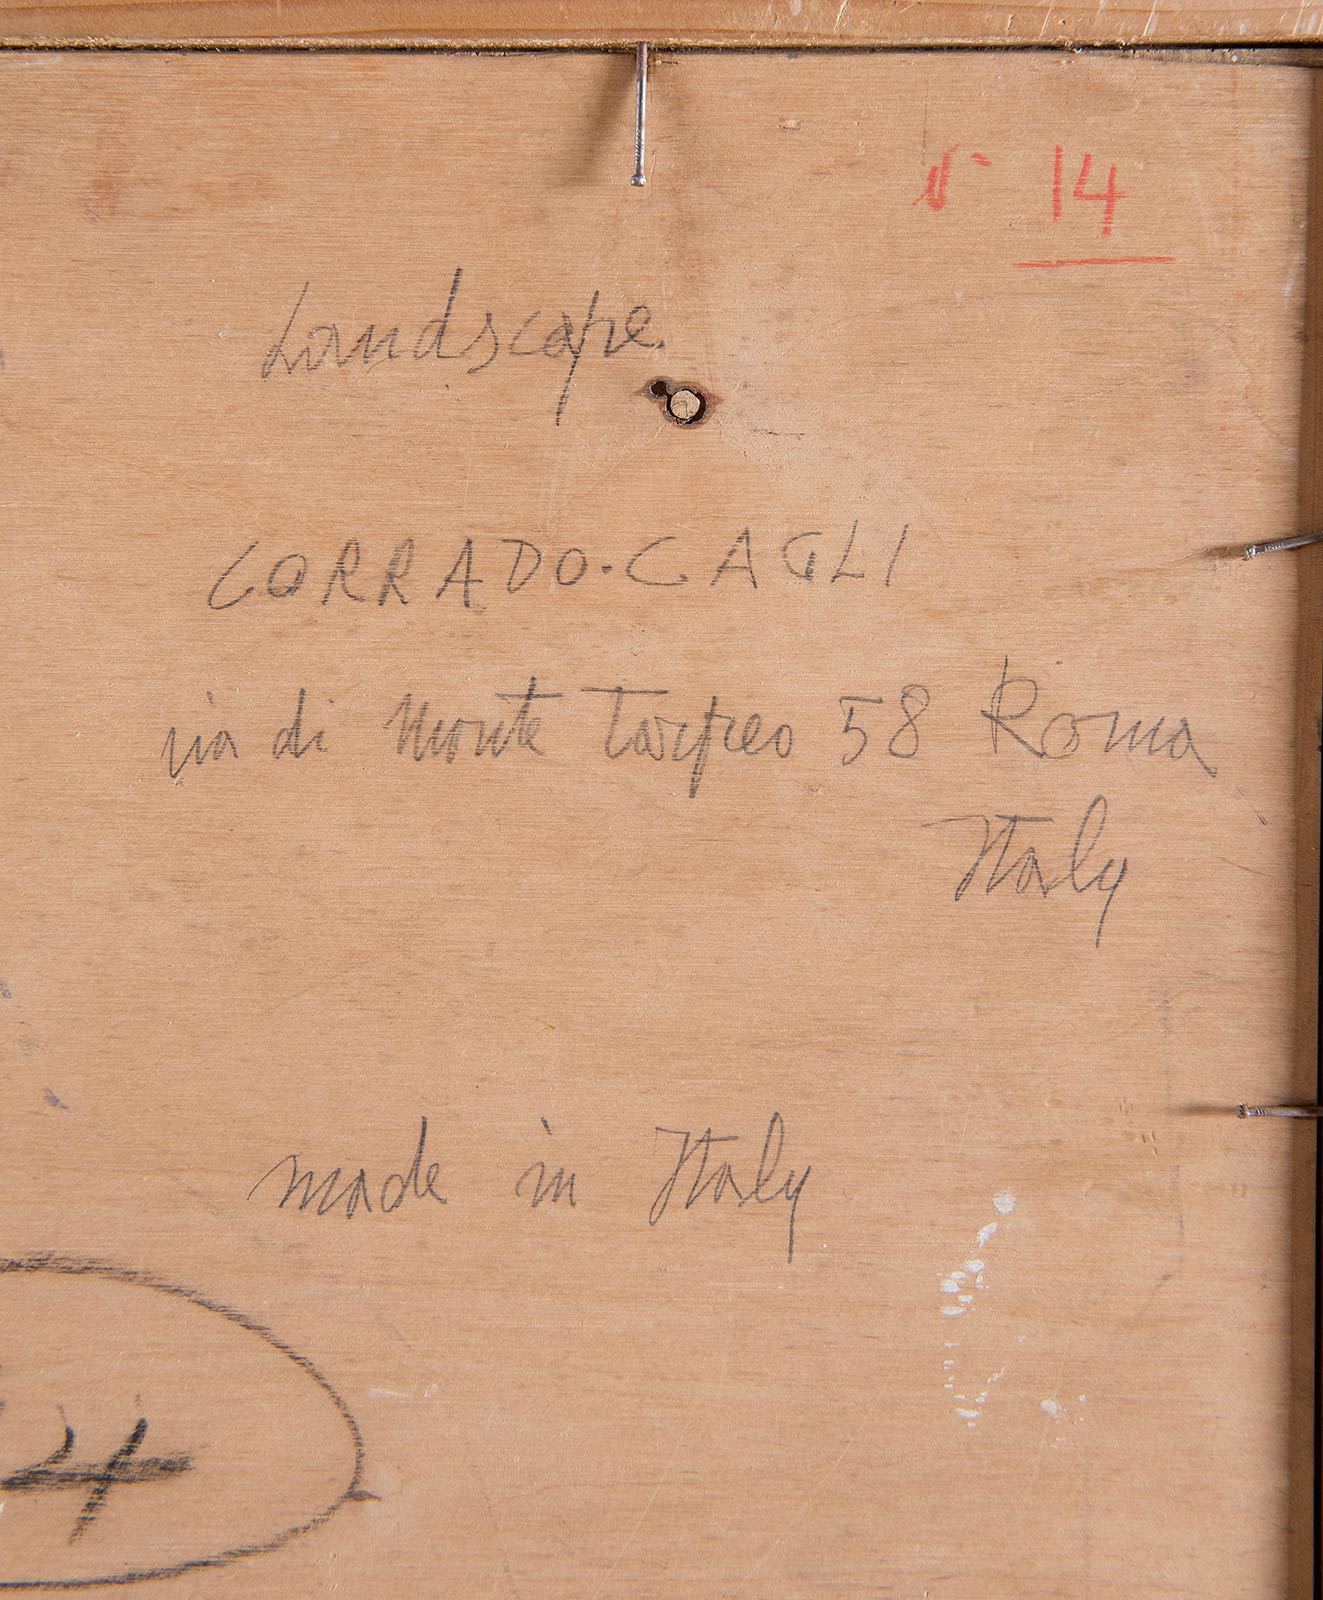 n° 14
Landscape
CORRADO·CAGLI
via di Monte Tarpeo 58 Roma
Italy
made in Italy
4